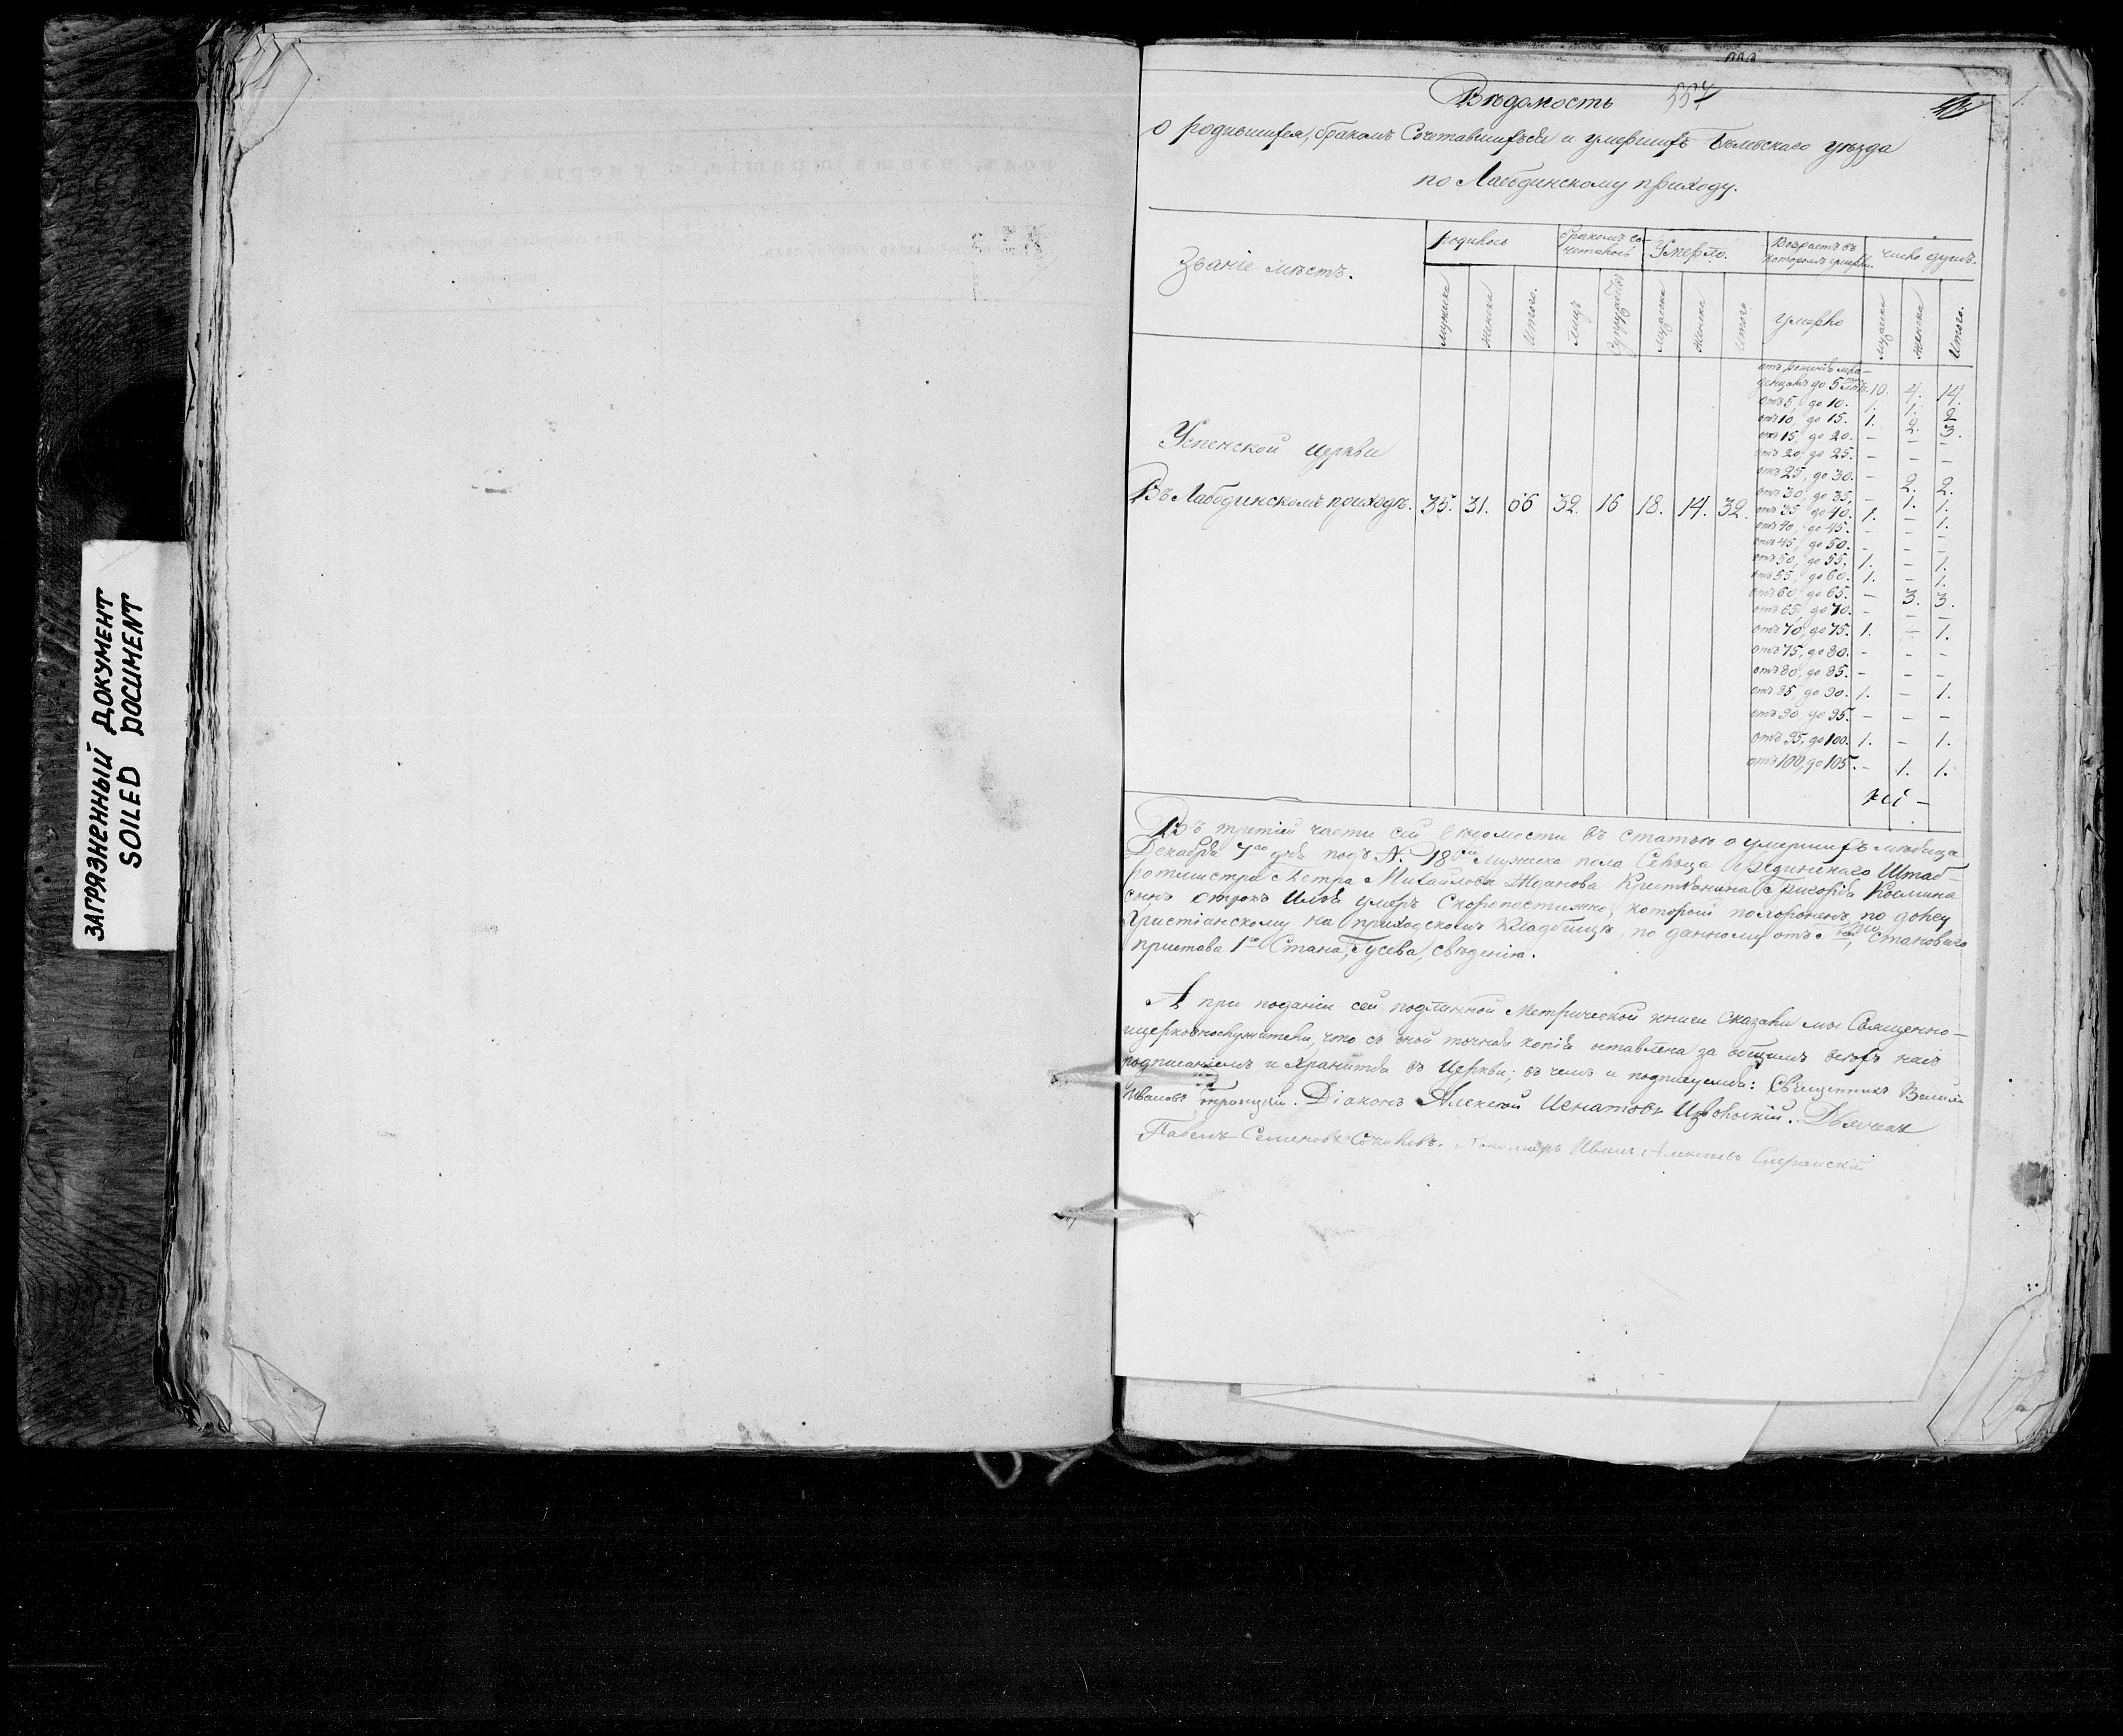 ЗАГРЯЗНЕННЫЙ ДОКУМЕНТ
SOILED DOCUMENT
Вѣдомость 557
о родившихся, бракомъ Сочетавшихся и умершихъ Бѣлевскаго уѣзда
по Лабодинскому приходу.
Званіе мѣстъ.
родилось
бракомъ со-
четалось
Умерло.
Возрастъ въ
которомъ умерли.
число душъ.
мужеска
женска
Итого.
Лицъ
Супружествъ
мужеска
женска
Итого
Умерло
мужеска
женска
Итого.
отъ рожденія мла-
денцами до 5 лѣтъ. 10. 4. 14.
отъ 5, до 10. 1. 1. 2
отъ 10, до 15. 1. 2. 3.
отъ 15, до 20. - - -
отъ 20, до 25. - - -
отъ 25, до 30. - 2. 2.
отъ 30, до 35. - 1. 1.
отъ 35, до 40. 1. - 1.
отъ 40, до 45. - - -
отъ 45, до 50. - - -
отъ 50, до 55. 1. - 1.
отъ 55, до 60. 1. - 1.
отъ 60, до 65. - 3. 3.
отъ 65, до 70. - - -
отъ 70, до 75. 1. - 1.
отъ 75, до 80. - - -
отъ 80, до 85. - - -
отъ 85, до 90. 1. - 1.
отъ 90, до 95. - - -
отъ 95, до 100. 1. - 1.
отъ 100, до 105. - 1. 1.
Успенской церкви
Въ Лабодинскомъ приходѣ. 35. 31. 66 32. 16 18. 14. 32.
Въ третіей части сей вѣдомости въ статью о умершихъ мѣсяца
Декабря 7го дня подъ №. 18 Мужеска пола Сельца Штаб-
ротмистра Петра Михайлова Жданова Крестьянина Григорья Косьмина
сынъ отрокъ Илья умеръ Скоропостижно, который похороненъ по долгу
Христіанскому на приходскомъ Кладбищѣ, по данному отъ становаго
пристава 1го Стана, Гусева, свѣденію.
А при поданіи сей подлинной Метрической книги Сказали мы Священно-
ицерковнослужители, что съ оной точная копія оставлена за общимъ всѣхъ насъ
подписаніемъ и хранится въ Церкви; въ чемъ и подписуемся: Священникъ Василій
Ивановъ Троицкій. Діаконъ Алексѣй Игнатовъ Извольскій. Дьячекъ
Павелъ Семеновъ Соколовъ. Пономарь Иванъ Алексѣевъ Сперанскій